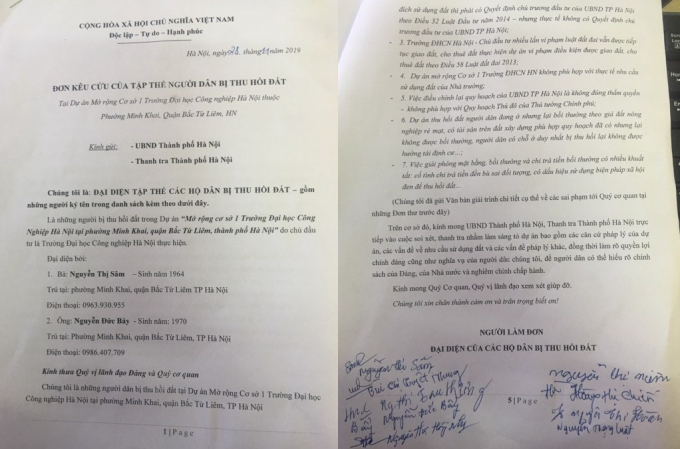 CỘNG HÒA XÃ HỘI CHỦ NGHĨA VIỆT NAM
Độc lập - Tự do - Hạnh phúc
Hà Nội, ngày 28 tháng 11 năm 2019
ĐƠN KÊU CỨU CỦA TẬP THỂ NGƯỜI DÂN BỊ THU HỒI ĐẤT
Tại Dự án Mở rộng Cơ sở 1 Trường Đại học Công nghiệp Hà Nội thuộc
Phường Minh Khai, Quận Bắc Từ Liêm, HN
Kính gửi: - UBND Thành phố Hà Nội
- Thanh tra Thành phố Hà Nội
Chúng tôi là: ĐẠI DIỆN TẬP THỂ CÁC HỘ DÂN BỊ THU HỒI ĐẤT – gồm
những người ký tên trong danh sách kèm theo dưới đây.
Là những người bị thu hồi đất trong Dự án "Mở rộng cơ sở 1 Trường Đại học Công
Nghiệp Hà Nội tại phường Minh Khai, quận Bắc Từ Liêm, thành phố Hà Nội" do chủ đầu
tư là Trường Đại học Công nghiệp Hà Nội thực hiện.
Đại diện bởi:
1. Bà: Nguyễn Thị Sâm – Sinh năm 1964
Trú tại: phường Minh Khai, quận Bắc Từ Liêm TP Hà Nội
Điện thoại: 0963.930.955
2. Ông: Nguyễn Đức Bảy - Sinh năm: 1970
Trú tại: Phường Minh Khai, quận Bắc Từ Liêm, TP Hà Nội
Điện thoại: 0986.407.709
Kính thưa Quý vị lãnh đạo Đảng và Quý cơ quan
Chúng tôi là những người dân bị thu hồi đất tại Dự án Mở rộng Cơ sở 1 Trường Đại học
Công nghiệp Hà Nội tại phường Minh Khai, quận Bắc Từ Liêm, TP Hà Nội
1 | Page
đích sử dụng đất thì phải có Quyết định chủ trương đầu tư của UBND TP Hà Nội
theo Điều 32 Luật Đầu tư năm 2014 – nhưng thực tế không có Quyết định chủ
trương đầu tư của UBND TP Hà Nội;
- 3. Trường ĐHCN Hà Nội - Chủ đầu tư nhiều lần vi phạm luật đất đai vẫn được tiếp
tục giao đất, cho thuê đất thực hiện dự án vi phạm điều kiện được giao đất, cho
thuê đất theo Điều 58 Luật đất đai 2013;
- 4. Dự án mở rộng Cơ sở 1 Trường ĐHCN HN không phù hợp với thực tế nhu cầu
sử dụng đất của Nhà trường;
- 5. Việc điều chỉnh lại quy hoạch của UBND TP Hà Nội là không đúng thẩm quyền
- không phù hợp với Quy hoạch Thủ đô của Thủ tướng Chính phủ;
- 6. Dự án thu hồi đất người dân đang ở nhưng lại bồi thường theo giá đất nông
nghiệp rẻ mạt, có tài sản trên đất xây dựng phù hợp quy hoạch đã có nhưng lại
không được bồi thường, người dân có chỗ ở duy nhất bị thu hồi lại không được
hưởng tái định cư...;
- 7. Việc giải phóng mặt bằng, bồi thường và chi trả tiền bồi thường có nhiều khuất
tất: cố tình chi trả tiền đền bù sai đối tượng, có dấu hiệu sử dụng biện pháp xã hội
đen để thu hồi đất...
(Chúng tôi đã gửi Văn bản giải trình chi tiết cụ thể về các sai phạm tới Quý cơ quan tại
những Đơn thư trước đây)
Trên cơ sở đó, kính mong UBND Thành phố Hà Nội, Thanh tra Thành phố Hà Nội trực
tiếp vào cuộc soi xét, thanh tra nhằm làm sáng tỏ dự án bao gồm các căn cứ pháp lý của dự
án, các vấn đề về nhu cầu sử dụng đất và các vấn đề pháp lý khác, đồng thời làm rõ quyền lợi
chính đáng cũng như nghĩa vụ của người dân chúng tôi, để người dân có thể hiểu rõ chính
sách của Đảng, của Nhà nước và nghiêm chỉnh chấp hành.
Kính mong Quý Cơ quan, Quý vị lãnh đạo xem xét giúp đỡ.
Chúng tôi xin chân thành cảm ơn và trân trọng biết ơn!
NGƯỜI LÀM ĐƠN
ĐẠI DIỆN CỦA CÁC HỘ DÂN BỊ THU HỒI ĐẤT
Nguyễn Thị Sâm
Bùi Thị Tuyết Nhung
Ng Thị Thu Thủy
Bảy Nguyễn Đức Bảy
5 | Page
Nguyễn Thị Miền
Nguyễn Ngọc Luật